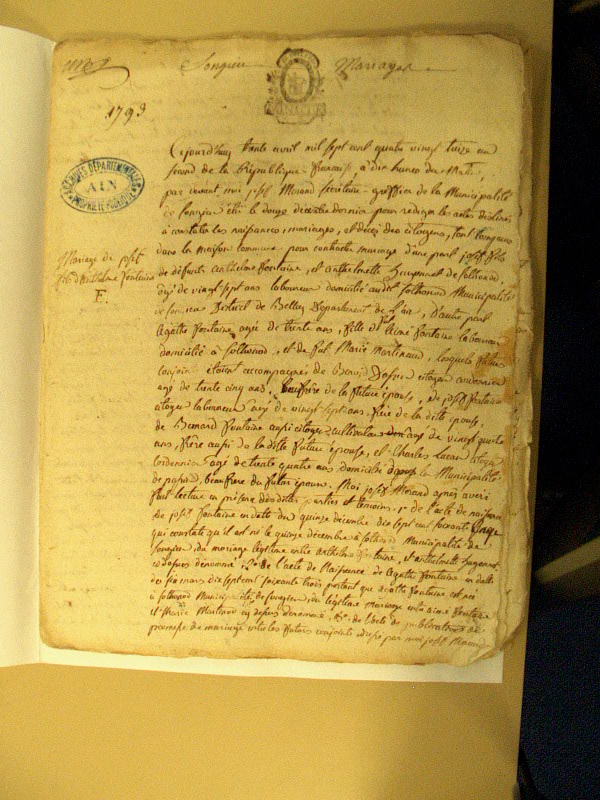 Songieu Mariages
1793
ARCHIVES DÉPARTEMENTALES
AIN
Cejourd'huy trente avril mil sept cent quatre vingt treize an
second de la République française, à dix heures du Matin,
par devant moi josef Morand secretaire greffier de la Municipalité
de songieu élu le douze décembre dernier pour rediger les actes destinés
à constater les naissances, mariages, et décès des citoyens, sont comparus
Mariage de josef
dans la maison commune pour contracter mariage d'une part josef fils
fils d'Anthelme Fontaine
de défunts Anthelme fontaine, et anthelmette
F.
agé de vingt sept ans laboureur domicilié audit sothonod Municipalité
de songieu District de Belley Département de l'ain, d'autre part
Agathe fontaine agée de trente ans, fille d'Aimé Fontaine laboureur
domicilié à sothonod, et de fut Marie Martinand, lesquels futurs
conjoints étoient accompagnés de citoyen
agé de trente cinq ans, Beaufrère de la future épouse, de josef fontaine
citoyen laboureur agé de vingt sept ans, frère de la ditte épouse,
de Bernard fontaine aussi citoyen cultivateur agé de vingt quatre
ans, frère aussi de la ditte future épouse, et Charles citoyen
cordonnier agé de trente quatre ans domicilié dans la Municipalité
de beaufrère du futur époux. Moi josef Morand après avoir
fait lecture en présence desdittes parties et temoins, 1° de l'acte de naissance
de josef fontaine en datte du quinze décembre dix sept cent soixante
qui constate qu'il est né le quinze décembre à sothonod Municipalité de
songieu, du mariage légitime entre Anthelme fontaine, et anthelmette
cy dessus dénommé, 2° de l'acte de Naissance de Agathe fontaine en datte
du six mars dix sept cent soixante trois portant que agathe fontaine est née
à sothonod Municipalité de songieu, du légitime mariage entre aimé fontaine
et Marie Martinand cy dessus denommé, 3° de l'acte de publication de
promesse de mariage entre les futurs conjoints par moi josef Morand